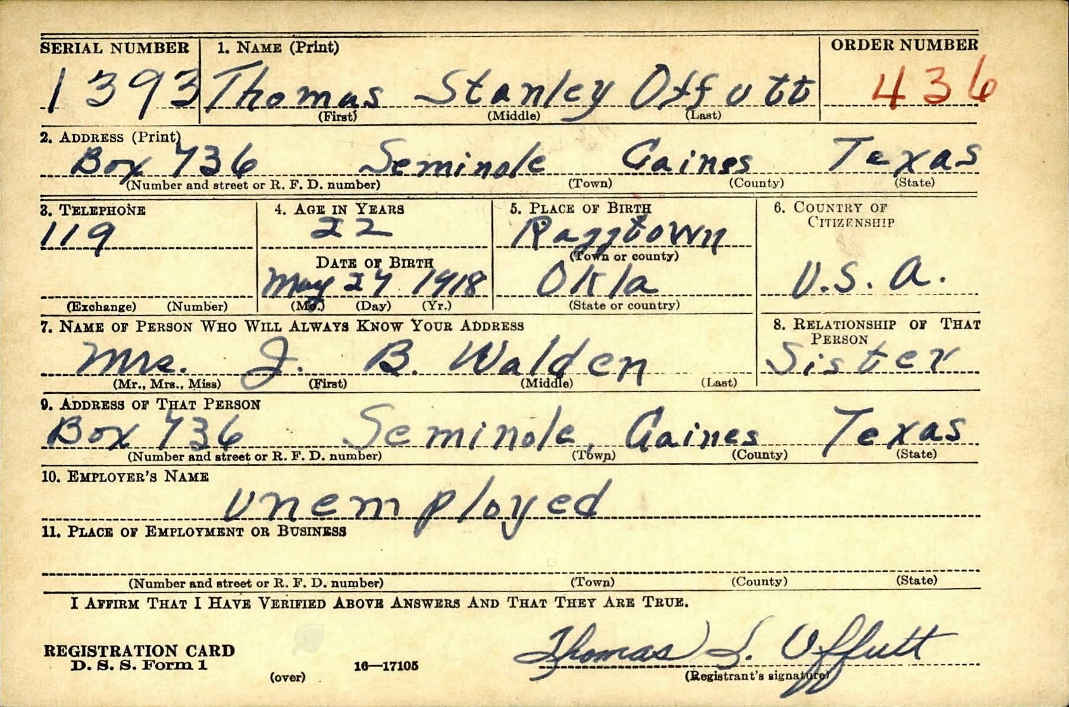 SERIAL NUMBER 1. NAME (Print) ORDER NUMBER
1393 Thomas Stanley Offutt 436
(First) (Middle) (Last)
2. ADDRESS (Print)
Box 736 Seminole Gaines Texas
(Number and street or R. F. D. number) (Town) (County) (State)
3. TELEPHONE 4. AGE IN YEARS 5. PLACE OF BIRTH 6. COUNTRY OF CITIZENSHIP
119 22 Raggtown
(Town or county)
DATE OF BIRTH
May 27 1918 Okla U.S.A.
(Exchange) (Number) (Mo.) (Day) (Yr.) (State or country)
7. NAME OF PERSON WHO WILL ALWAYS KNOW YOUR ADDRESS 8. RELATIONSHIP OF THAT PERSON
Mrs. J. B. Walden Sister
(Mr., Mrs., Miss) (First) (Middle) (Last)
9. ADDRESS OF THAT PERSON
Box 736 Seminole, Gaines Texas
(Number and street or R. F. D. number) (Town) (County) (State)
10. EMPLOYER'S NAME
Unemployed
11. PLACE OF EMPLOYMENT OR BUSINESS
(Number and street or R. F. D. number) (Town) (County) (State)
I AFFIRM THAT I HAVE VERIFIED ABOVE ANSWERS AND THAT THEY ARE TRUE.
REGISTRATION CARD Thomas S. Offutt
D. S. S. Form 1 16—17105
(over) (Registrant's signature)